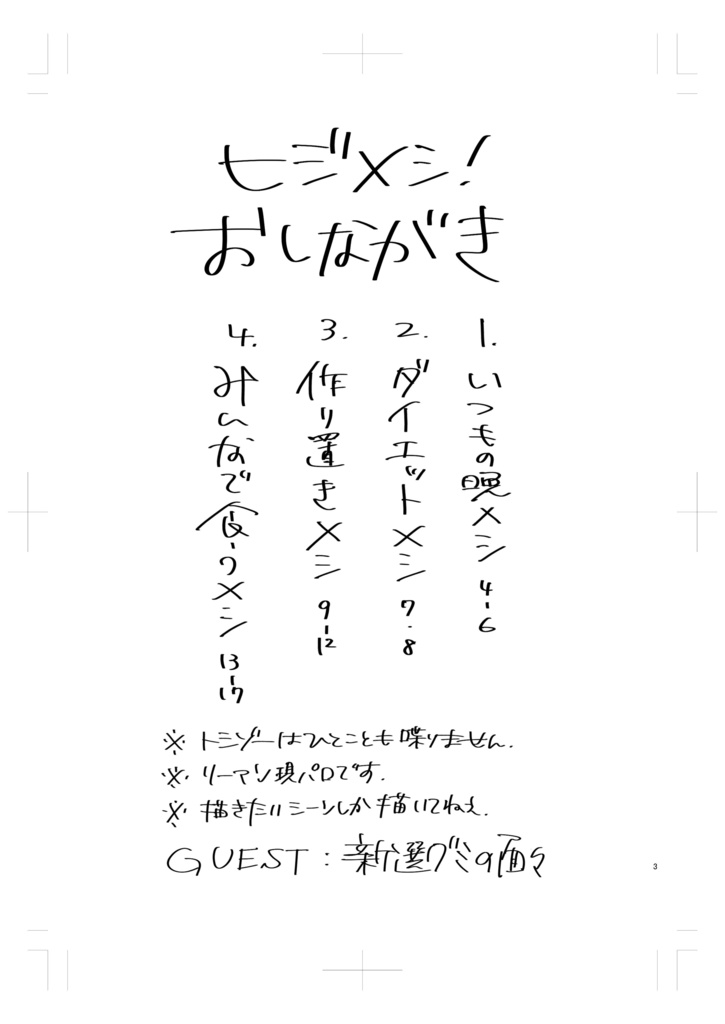 ヒジメシ!
おしながき
1. いつもの晩メシ 4-6
2. ダイエットメシ 7・8
3. 作り置きメシ 9-12
4. みんなで食うメシ 13-17
※トミゾーはひとことも喋りません.
※リーマン現パロです.
※描きたいシーンしか描いてねえ.
GUEST:新選グミの面々
3